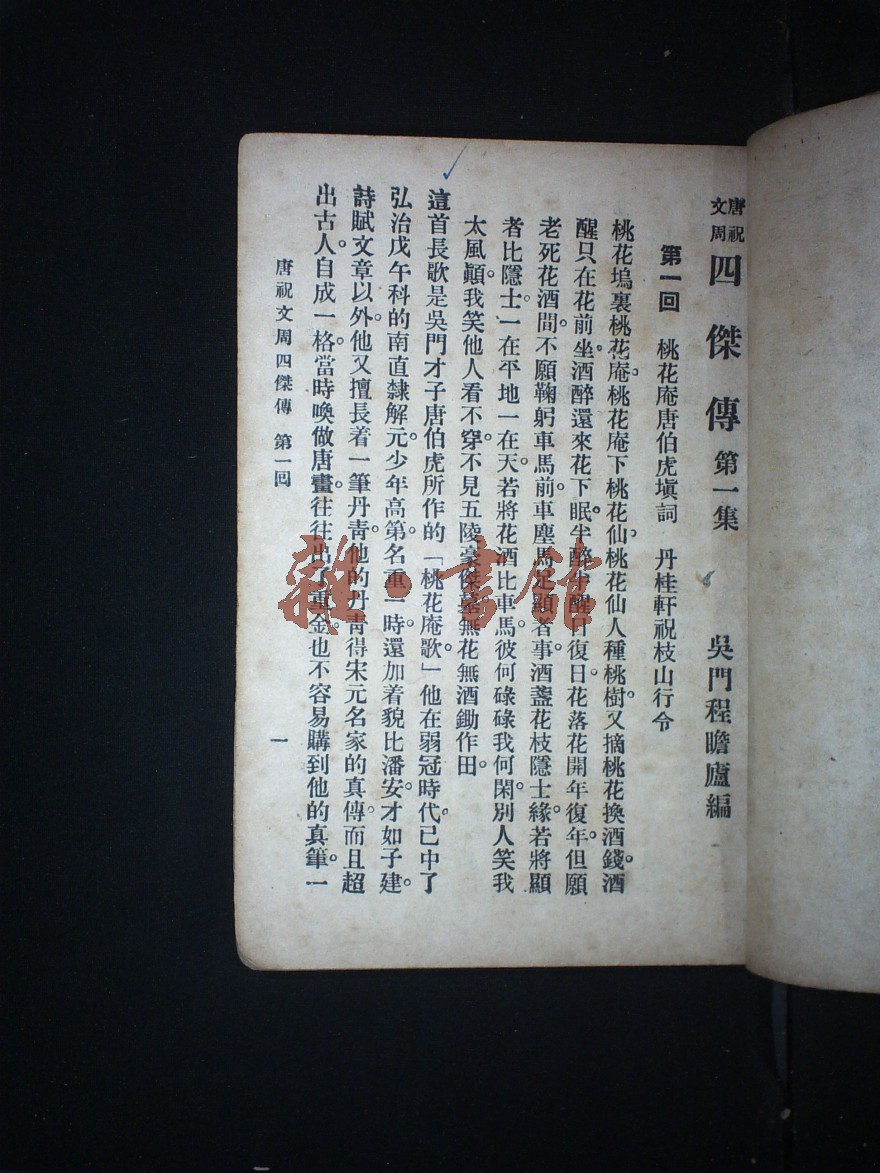 唐祝文周四傑傳 第一集 吳門程瞻廬編
第一回 桃花庵唐伯虎塡詞 丹桂軒祝枝山行令
桃花塢裏桃花庵。桃花庵下桃花仙。桃花仙人種桃樹。又摘桃花換酒錢。酒
醒只在花前坐。酒醉還來花下眠。半醉半醒日復日。花落花開年復年。但願
老死花酒間。不願鞠躬車馬前。車塵馬足顯者事。酒盞花枝隱士緣。若將顯
者比隱士。一在平地一在天。若將花酒比車馬。彼何碌碌我何閑。別人笑我
太風顚。我笑他人看不穿。不見五陵豪傑墓。無花無酒鋤作田。
這首長歌是吳門才子唐伯虎所作的「桃花庵歌」。他在弱冠時代。已中了
弘治戊午科的南直隸解元。少年高第。名重一時。還加着貌比潘安。才如子建。
詩賦文章以外。他又擅長着一筆丹靑。他的丹靑得宋元名家的眞傳。而且超
出古人。自成一格。當時喚做唐畫。往往出了重金。也不容易購到他的眞筆。一
唐祝文周四傑傳 第一回
一
雜·書館